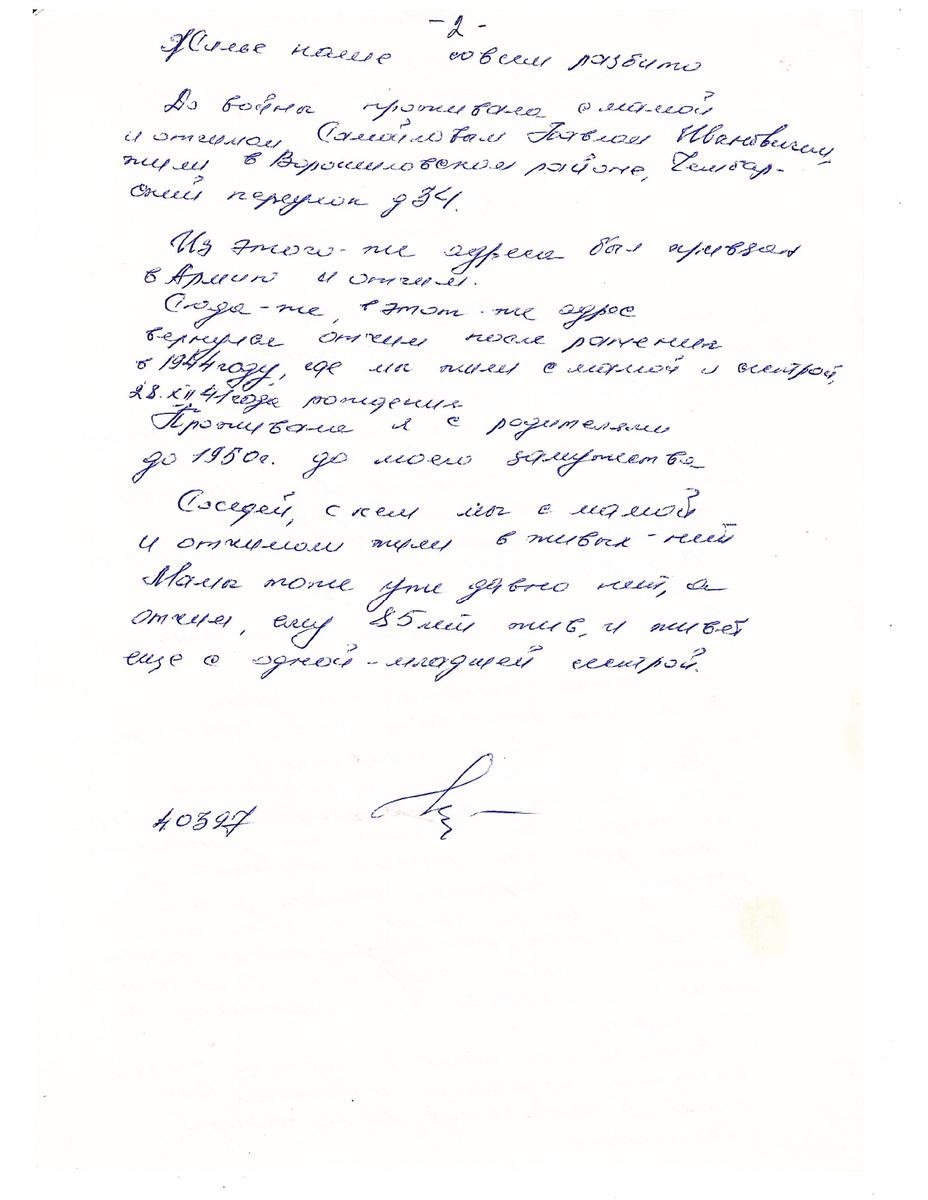 - 2 -
Жилье наше совсем разбито
До войны проживала с мамой
и отчимом Самойловым Павлом Ивановичем,
жили в Ворошиловском районе, Чембар-
ский переулок д 34.
Из этого-же адреса был призван
в Армию и отчим.
Сюда-же, в этот-же адрес
вернулся отчим после ранения
в 1944 году, где мы жили с мамой и сестрой,
28.XII 41 года рождения
Проживала я с родителями
до 1950г. до моего замужества
Соседей, с кем мы с мамой
и отчимом жили в живых-нет
Мамы тоже уже давно нет, а
отчим, ему 85 лет жив, и живет
еще с одной-младшей сестрой.
40397